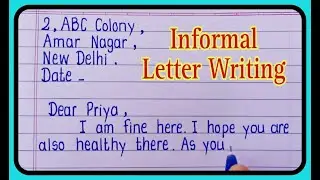 2, ABC Colony,
Amar Nagar,
New Delhi.
Date -
Informal
Letter Writing
Dear Priya,
I am fine here. I hope you are
also healthy there. As you